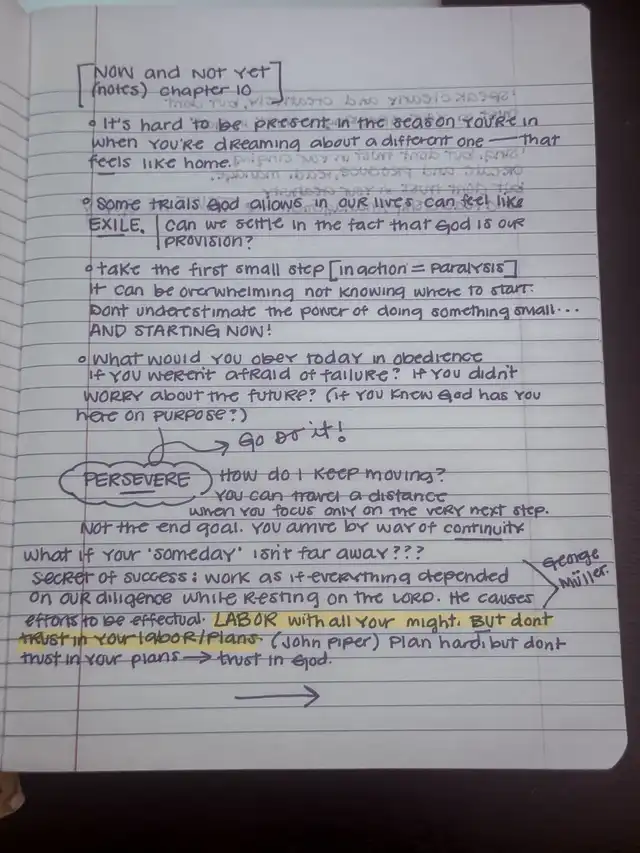 [NOW and NOT Yet
(notes) chapter 10]
• It's hard to be present in the season you're in
when you're dreaming about a different one — that
feels like home.
• Some trials God allows in our lives can feel like
EXILE. | can we settle in the fact that God is our
PROVISION?
• take the first small step [inaction = paralysis]
It can be overwhelming not knowing where to start.
Dont underestimate the power of doing something small...
AND STARTING NOW!
• What would you obey today in obedience
if you weren't afraid of failure? if you didn't
WORRY about the future? (if you knew God has you
here on PURPOSE?)
→ Go do it!
PERSEVERE How do I keep moving?
You can travel a distance
when you focus only on the very next step.
Not the end goal. you arrive by way of continuity
what if your 'someday' isn't far away???
secret of success: work as if everything depended
on our diligence while resting on the LORD. He causes
efforts to be effectual. LABOR with all your might. But dont
trust in your labor/plans. (John Piper) Plan hard, but dont
trust in your plans → trust in God.
George
Müller.
→